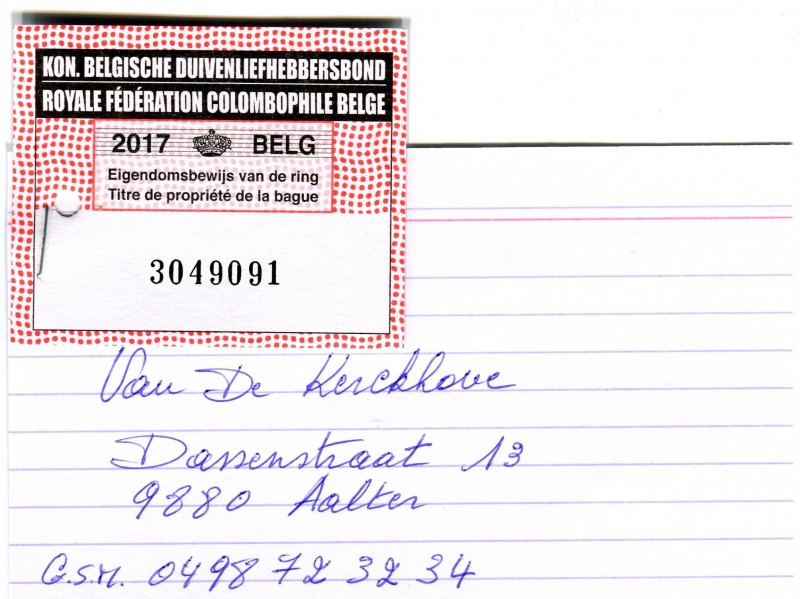 KON. BELGISCHE DUIVENLIEFHEBBERSBOND
ROYALE FÉDÉRATION COLOMBOPHILE BELGE
2017 BELG
Eigendomsbewijs van de ring
Titre de propriété de la bague
3049091
Van De Kerckhove
Dassenstraat 13
9880 Aalter
G.S.M. 0498 72 32 34